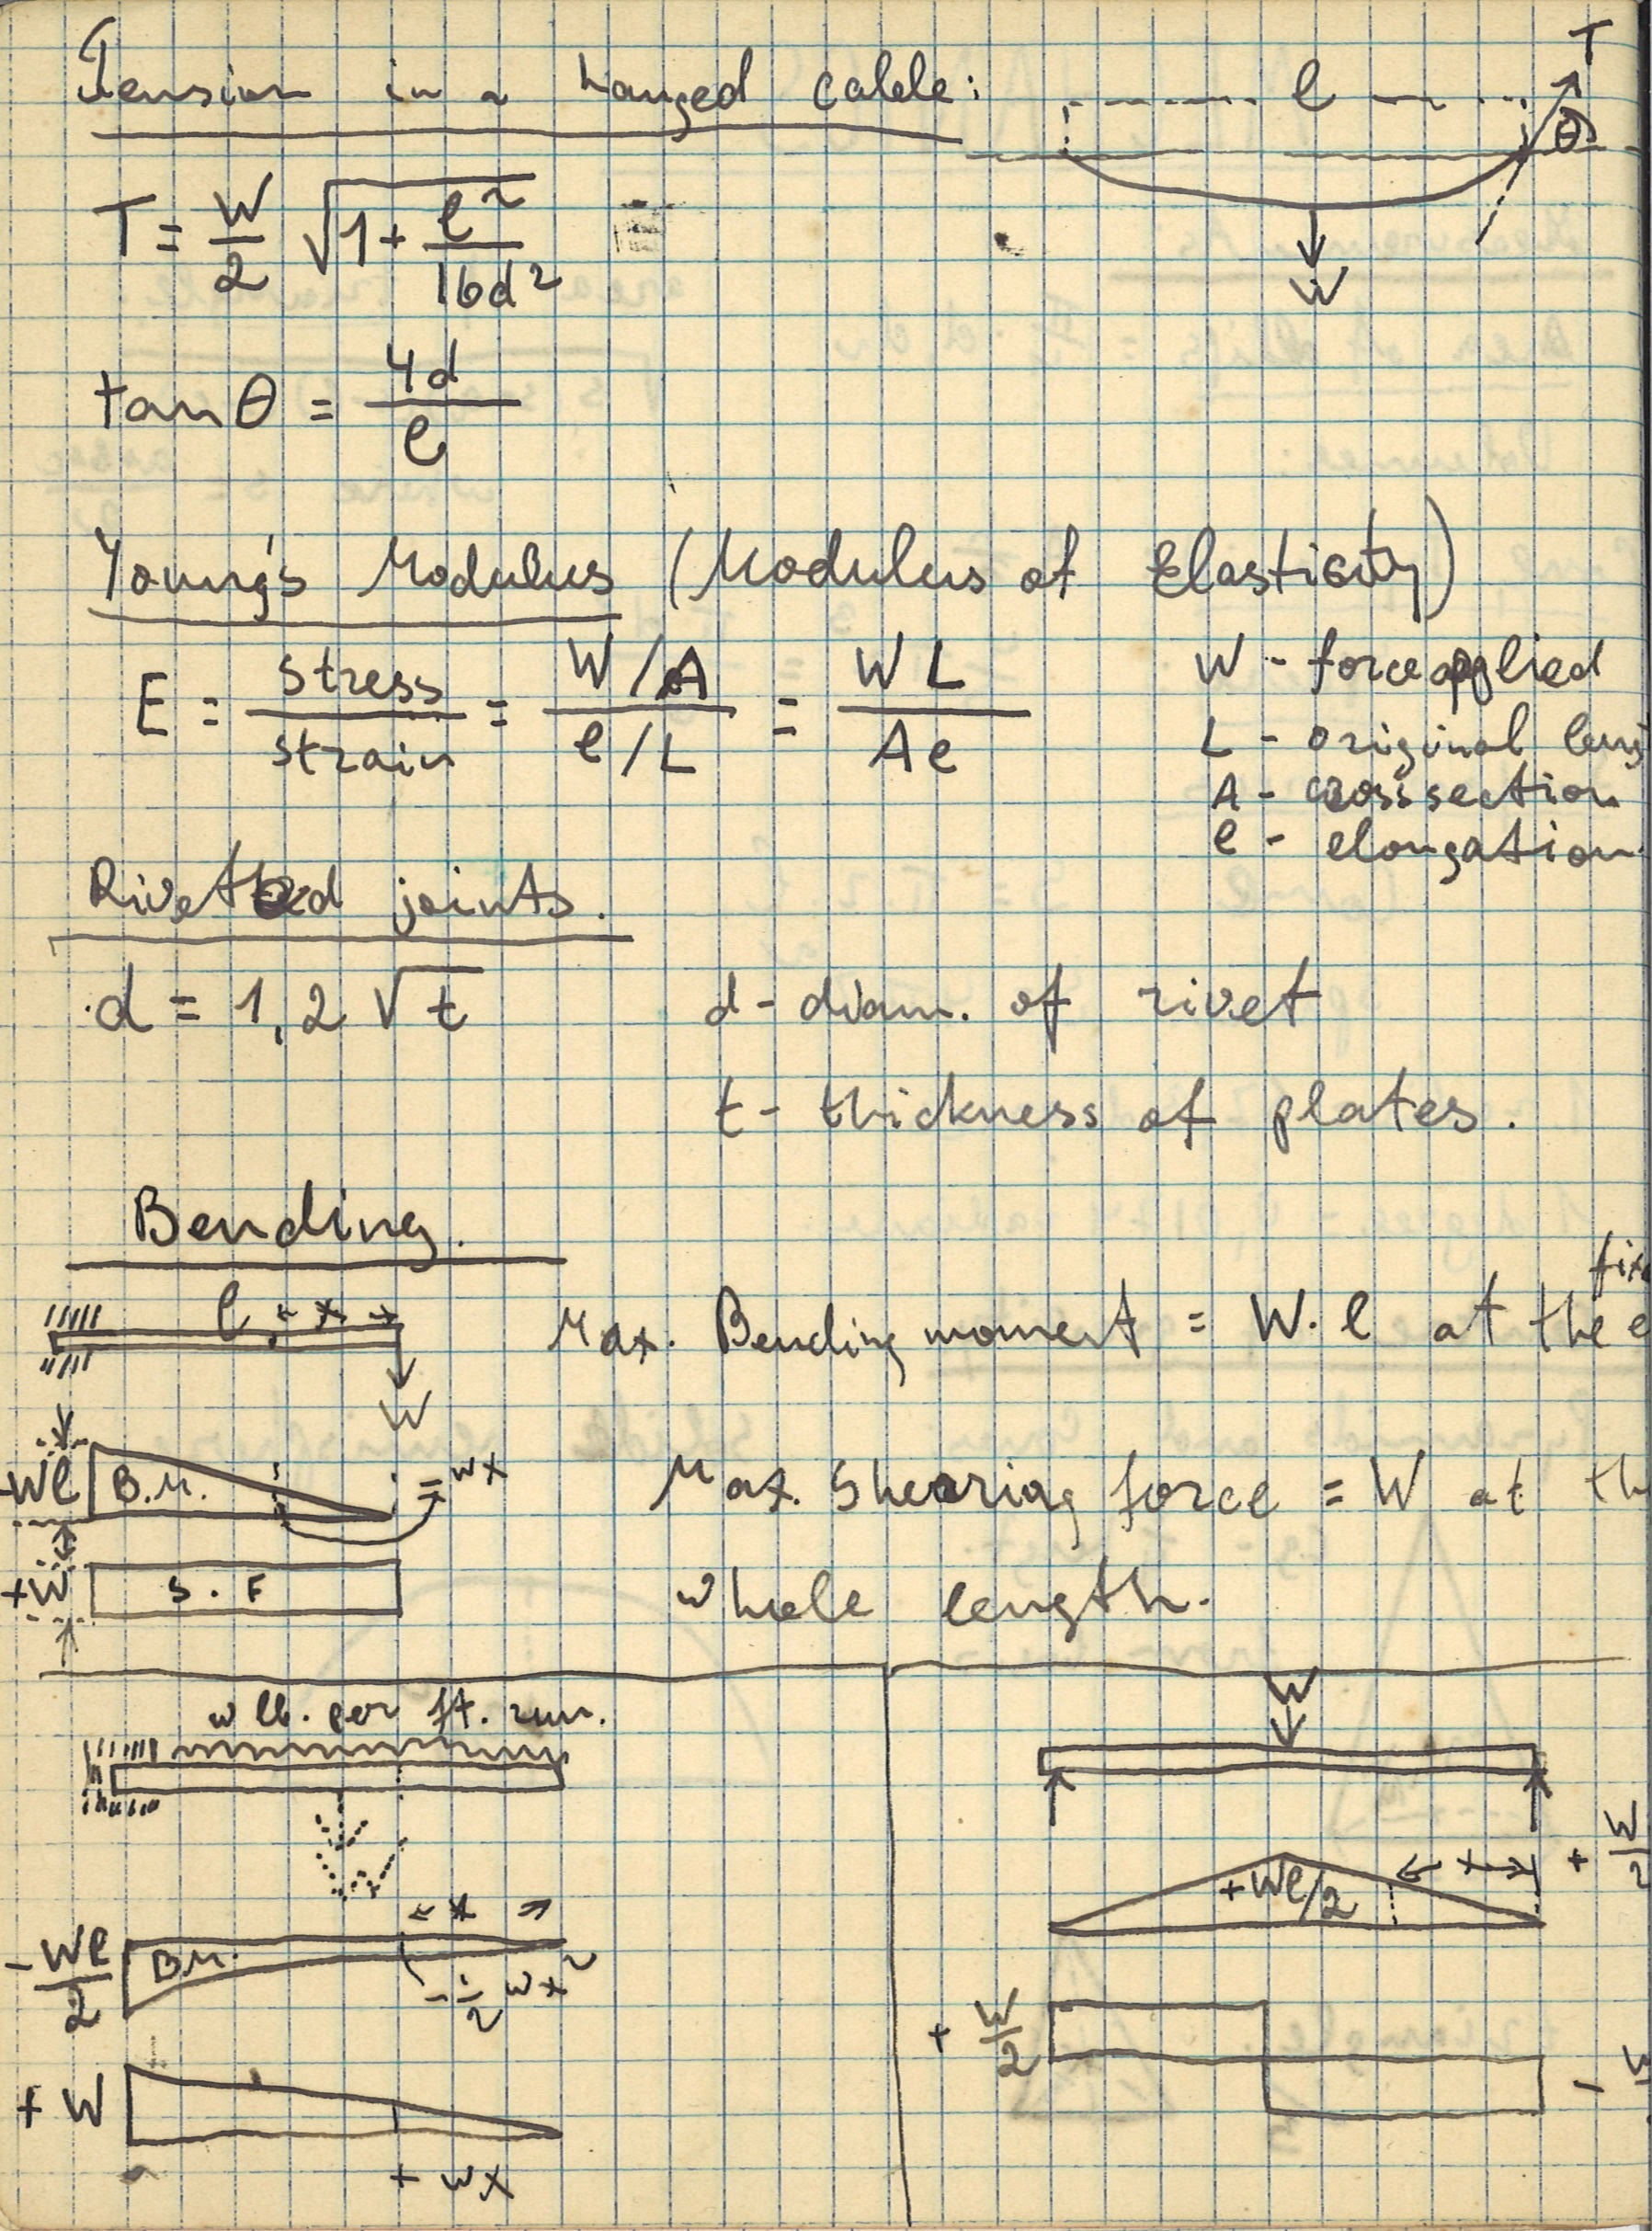 Tension in a hanged cable:
l
T
θ
W
T = W/2 √1 + l²/16d²
tan θ = 4d/l
Young's Modulus (Modulus of Elasticity)
E = stress/strain = W/A / e/L = WL/Ae
W - force applied
L - original leng
A - cross section
e - elongation
Rivetted joints.
d = 1,2 √t
d - diam. of rivet
t - thickness of plates.
Bending.
l x
W
Max. Bending moment = W.l at the e
fix
-Wl B.M. = wx
Max. Shearing force = W at th
+W S.F
whole length.
w lb. per ft. run.
x
-Wl/2 B.M. -1/2 wx²
+W
+ wx
W
+Wl/2 x + W/2
+ W/2
- W